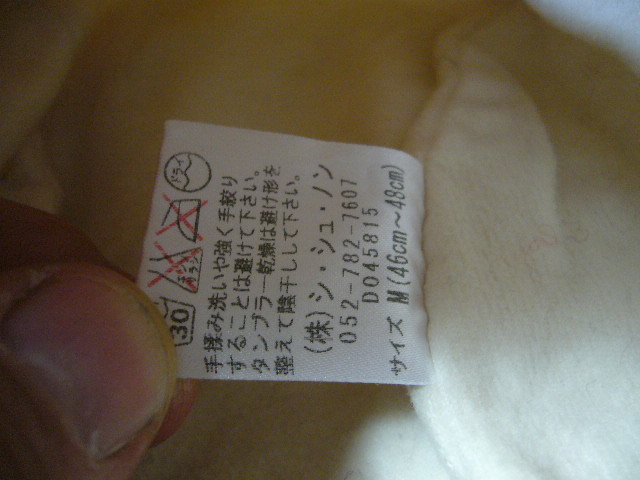 30
エンソ
ドライ
手揉み洗いや強く手絞り
することは避けて下さい。
タンブラー乾燥は避け形を
整えて陰干しして下さい。
(株)シ・シュ・ノン
052-782-7607
D045815
サイズ M(46cm~48cm)